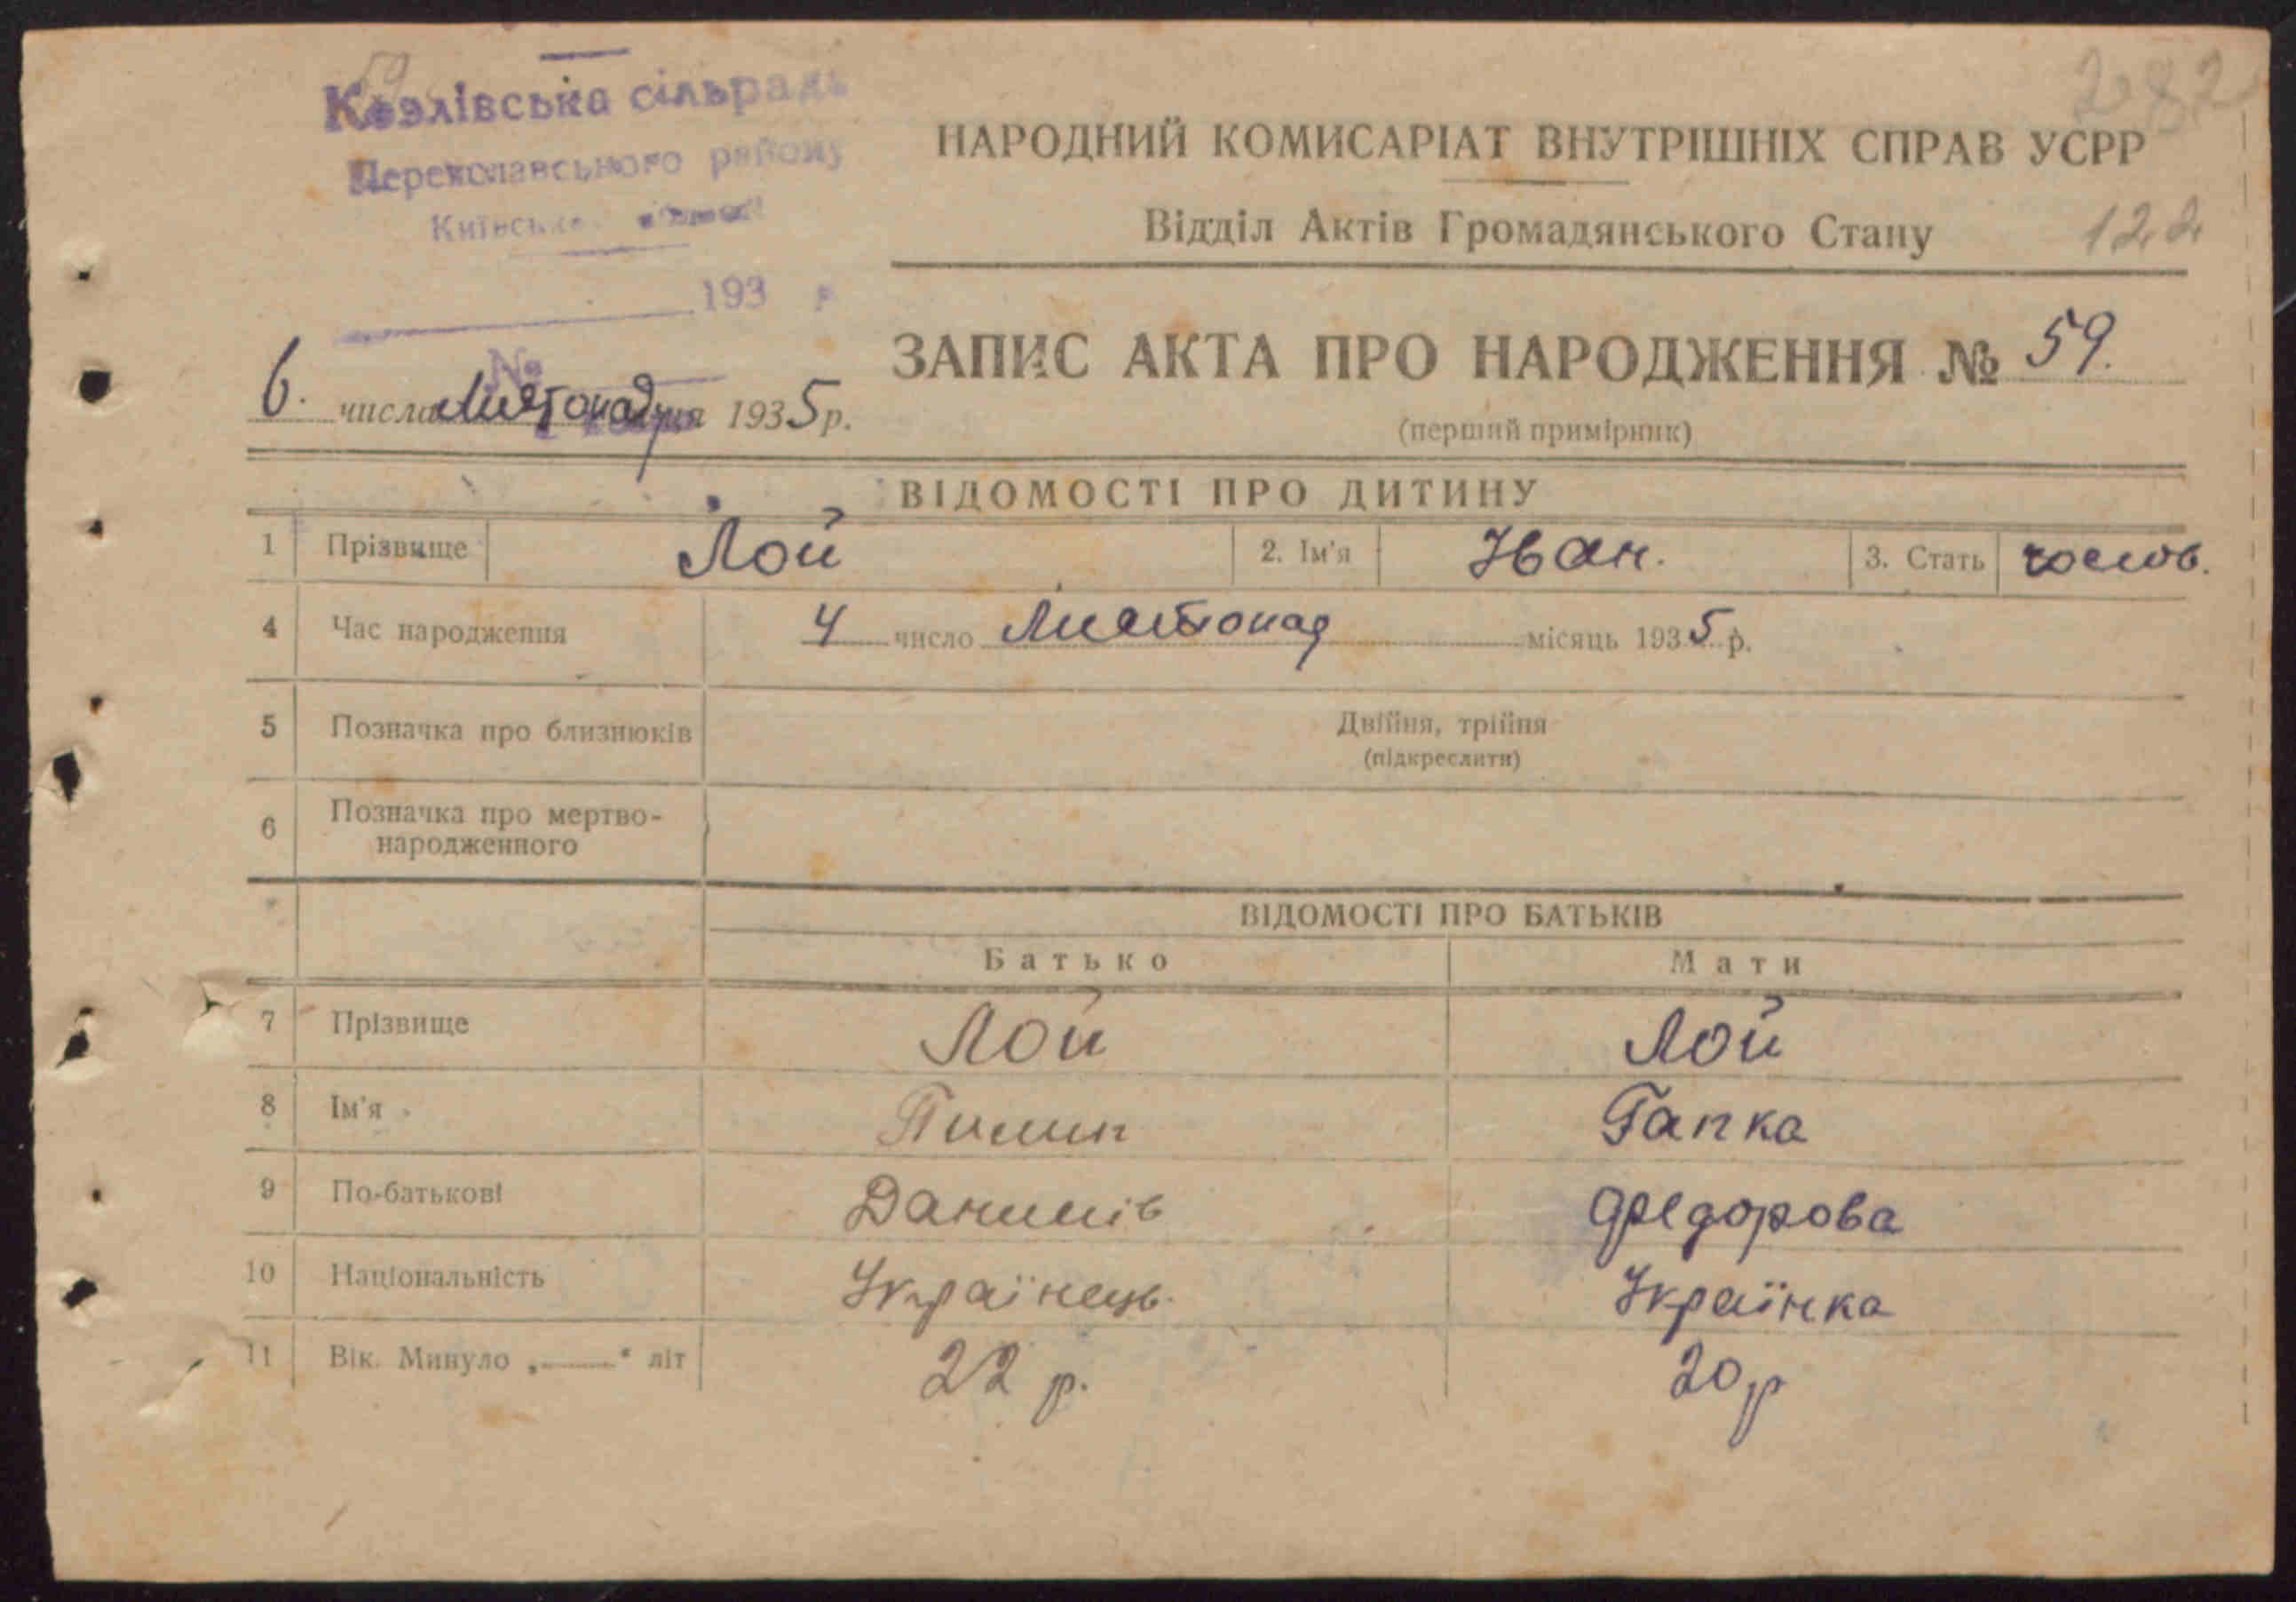 59
282
Козлівська сільрада
Переяславського району
Київської
193 р
№
НАРОДНИЙ КОМИСАРІАТ ВНУТРІШНІХ СПРАВ УСРР
Відділ Актів Громадянського Стану 122
ЗАПИС АКТА ПРО НАРОДЖЕННЯ № 59.
(перший примірник)
6. числа Листопад місяця 1935 р.
ВІДОМОСТІ ПРО ДИТИНУ
1 Прізвище Лой 2. Ім'я Іван. 3. Стать чолов.
4 Час народження 4 число Листопад місяць 1935 р.
5 Позначка про близнюків Двійня, трійня
(підкреслити)
6 Позначка про мертво-
народженного
ВІДОМОСТІ ПРО БАТЬКІВ
Батько Мати
7 Прізвище Лой Лой
8 Ім'я Пилип Гапка
9 По-батькові Данилів Федорова
10 Національність Українець. Українка
11 Вік. Минуло „——" літ 22 р. 20 р